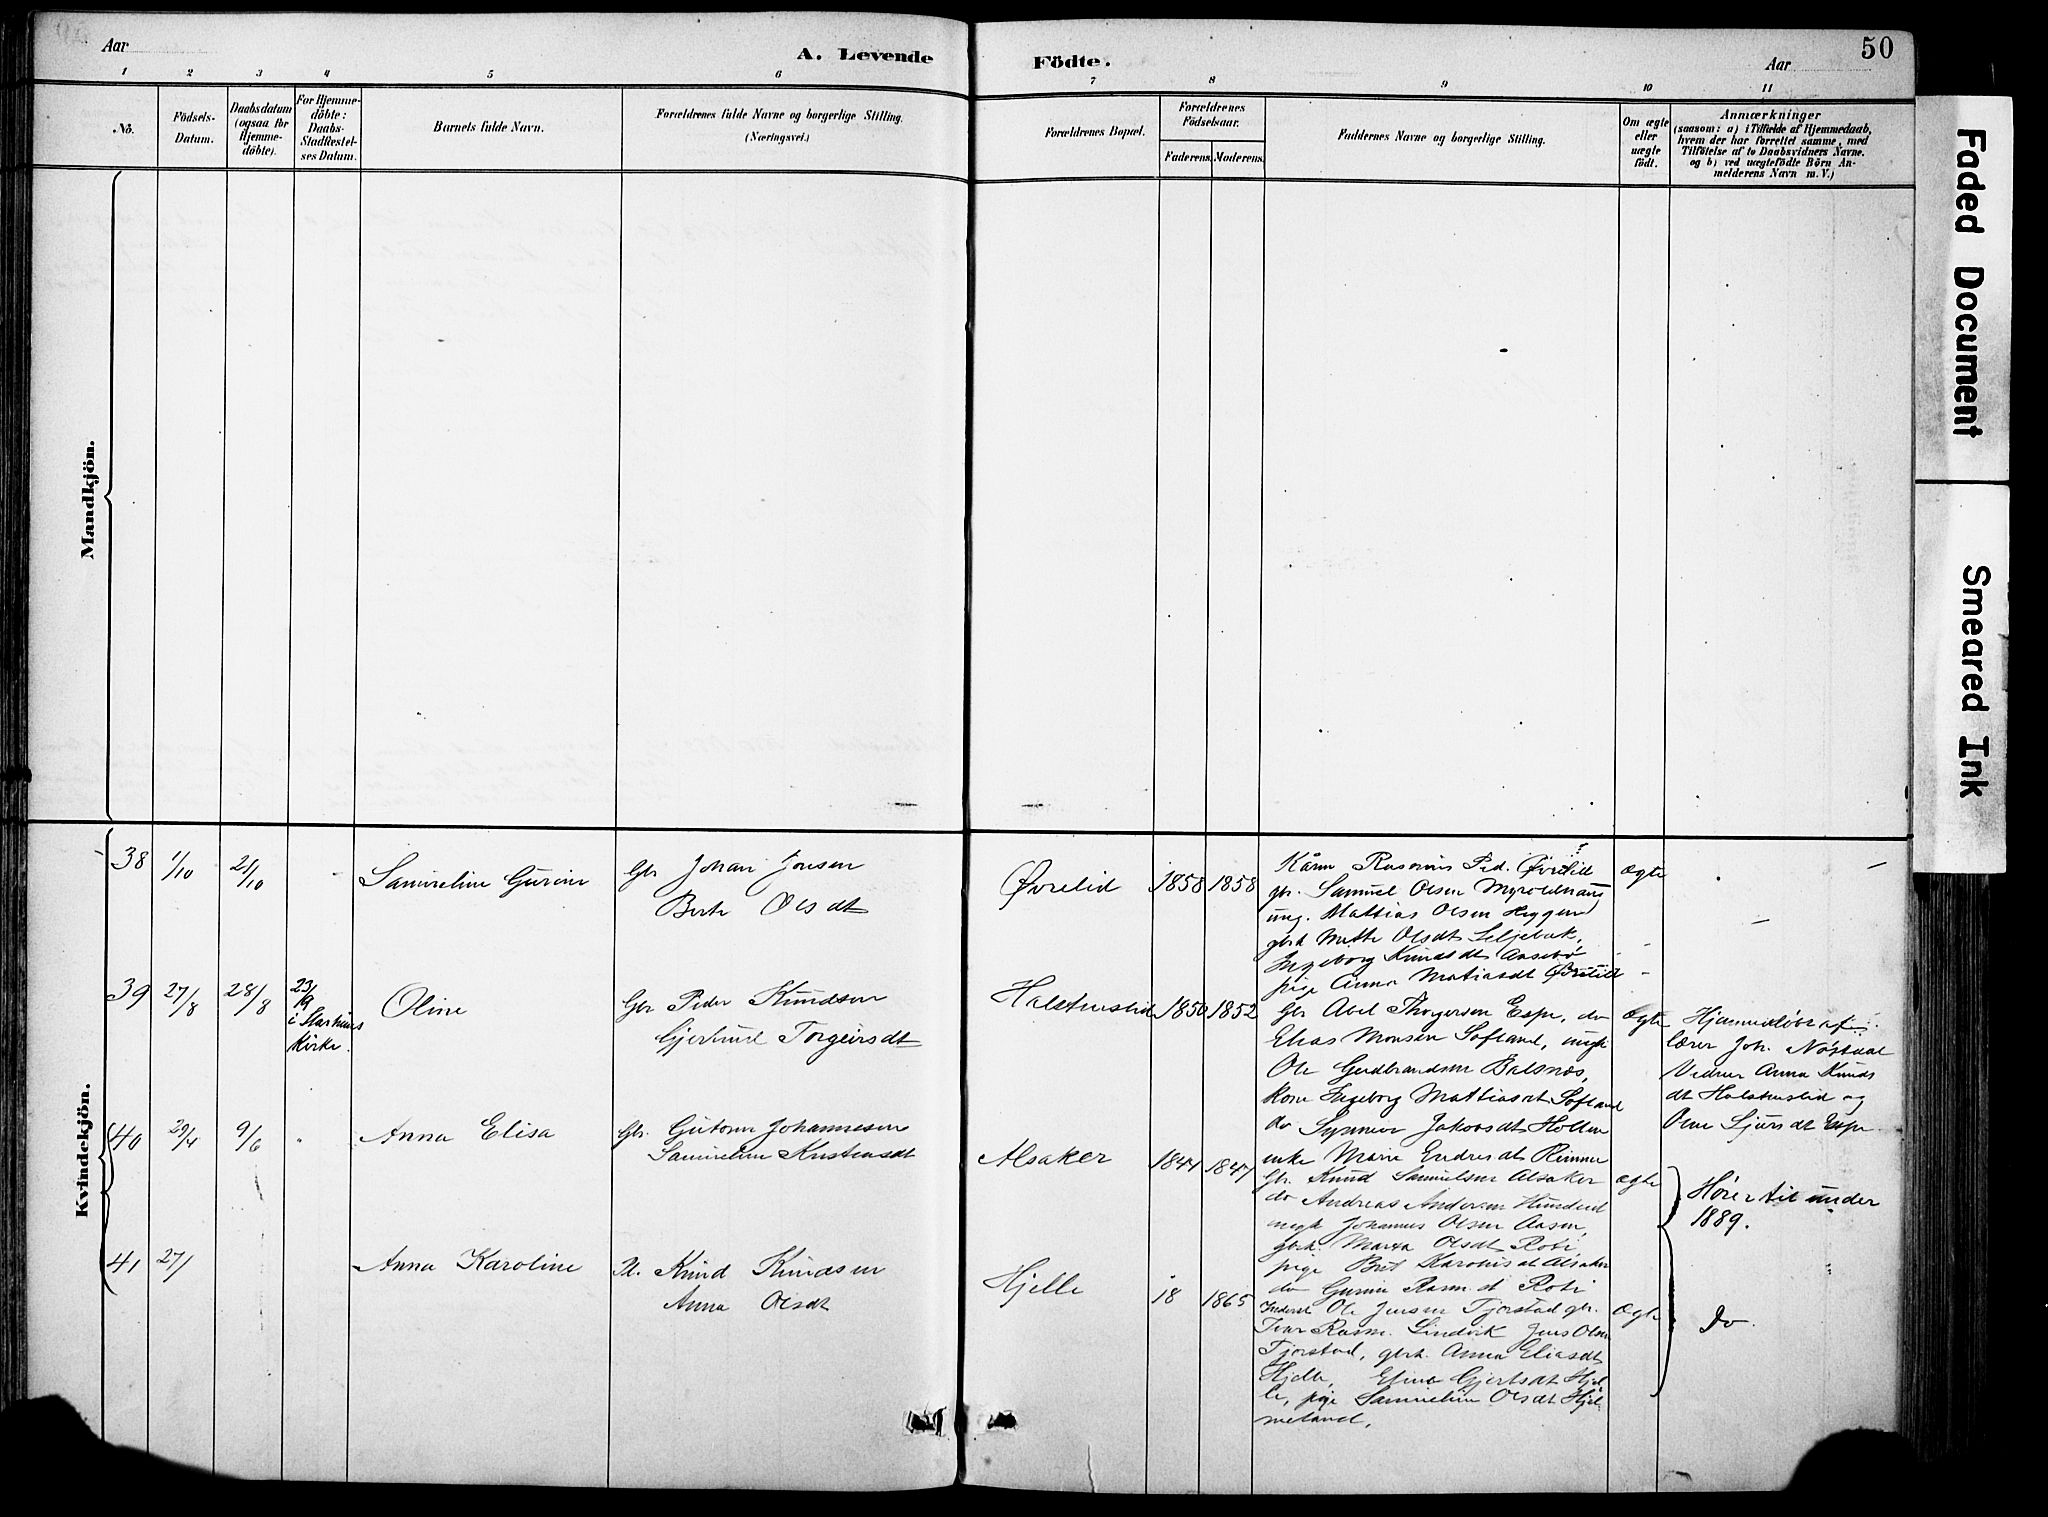 50
Aar
A. Levende
Födte.
Aar
1 2 3 4 5 6 7 8 9 10 11
No.
Födsels-
Datum.
Daabsdatum
(ogsaa for
Hjemme-
döbte).
For Hjemme-
döbte:
Daabs-
Stadfæstel-
ses Datum.
Barnets fulde Navn.
Forældrenes fulde Navne og borgerlige Stilling.
(Næringsvei.)
Forældrenes Bopæl.
Forældrenes
Födselsaar.
Faderens. Moderens.
Faddernes Navne og borgerlige Stilling.
Om ægte
eller
uægte
födt.
Anmærkninger
(saasom: a) i Tilfælde af Hjemmedaab,
hvem der har forrettet samme, med
Tilföielse af to Daabsvidners Navne.
og b) ved uægtefödte Börn An-
melderens Navn m. V.)
Mandkjön.
Kvindekjön.
38
1/10
21/10
Samueline Gurine
Gbr Johan Jonsen
Berte Olsdt
Øvrelid
1858 1858
Kåre Rasmus Ped. Øvrelid
gbr. Samuel Olsen
ung. Mattias Olsen Heggen
gbrk Mette Olsdt Seljebak,
Ingeborg Knudsdt Aasebø
pige Anna Matiasdt Øvrelid
ægte
39
27/8
28/8
23/9
i Stathins
Kirke.
Oline
Gbr Peder Knudsen
Gjertrud Torgeirsdt
Halstenslid
1850 1852
Gbr Abel Thorgersen Espe, do
Elias Monsen Sofland, ungk
Ole Gerdbrandsen Balsnes,
Kone Ingeborg Mattiasdt Sofland
do Synneve Jakobsdt Holten
enke Marie Endresdt Rimme
Ægte
Hjemmedøbt af
lærer Joh. Nøstdal
Vidner Anna Knuds
dt Halstenslid og
Oline Sjursdt Espe
40
29/4
9/6
"
Anna Elisa
Gbr. Gutorm Johannesen
Samueline Kristensdt
Alsaker
1844 1847
Gbr. Knud Samuelsen Alsaker
do Andreas Andersen
ungk Johannes Olsen Aasen,
gbrk. Marta Olsdt Roti
pige Brit Karoliusdt Alsaker
do Gurine Rasm.dt Roti
ægte
Hører til under
1889.
41
27/1
Anna Karoline
Pl. Knud Knudsen
Anna Olsdt
Hjelle
18 1865
Inderst Ole Jensen Tjørstad gbr.
Ivar Rasm. Lindvik Jens Olsen
Tjorstad, gbrk. Anna Eliasdt
Hjelle, Elina Gjertsdt Hjel-
le, pige Samueline Olsdt Hjel-
meland,
Ægte
Do
Faded Document
Smeared Ink